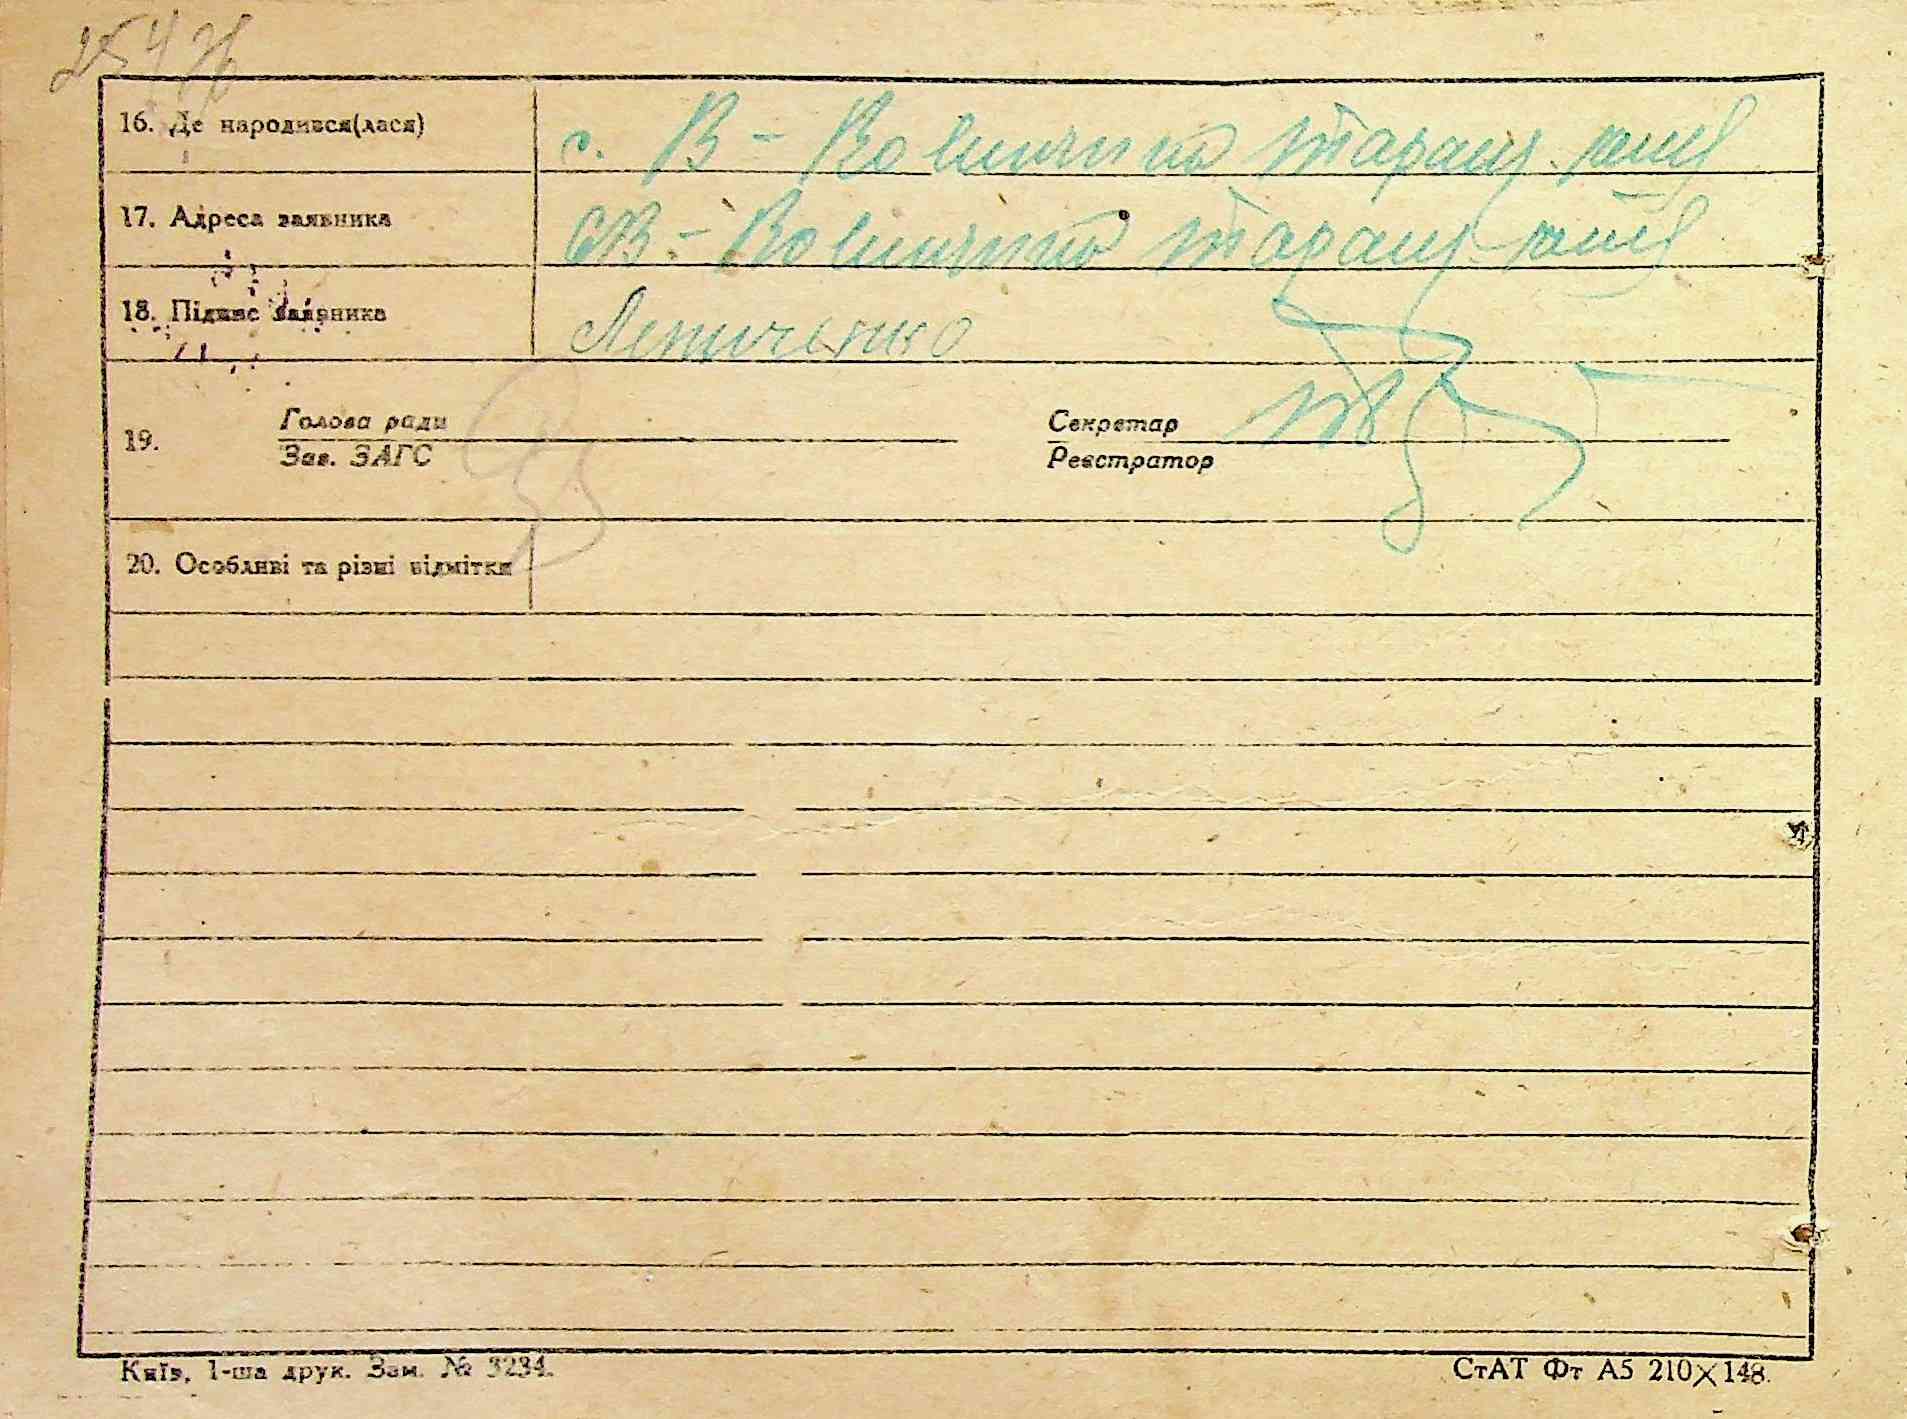 16. Де народився(лася)
с. В-Вовнянка Таращ.
17. Адреса заявника
с В-Вовнянка Таращ
18. Підпис заявника
19.
Голова ради
Зав. ЗАГС
Секретар
Реєстратор
20. Особливі та різні відмітки
Київ, 1-ша друк. Зам. № 3234.
СтАТ Фт А5 210×148.